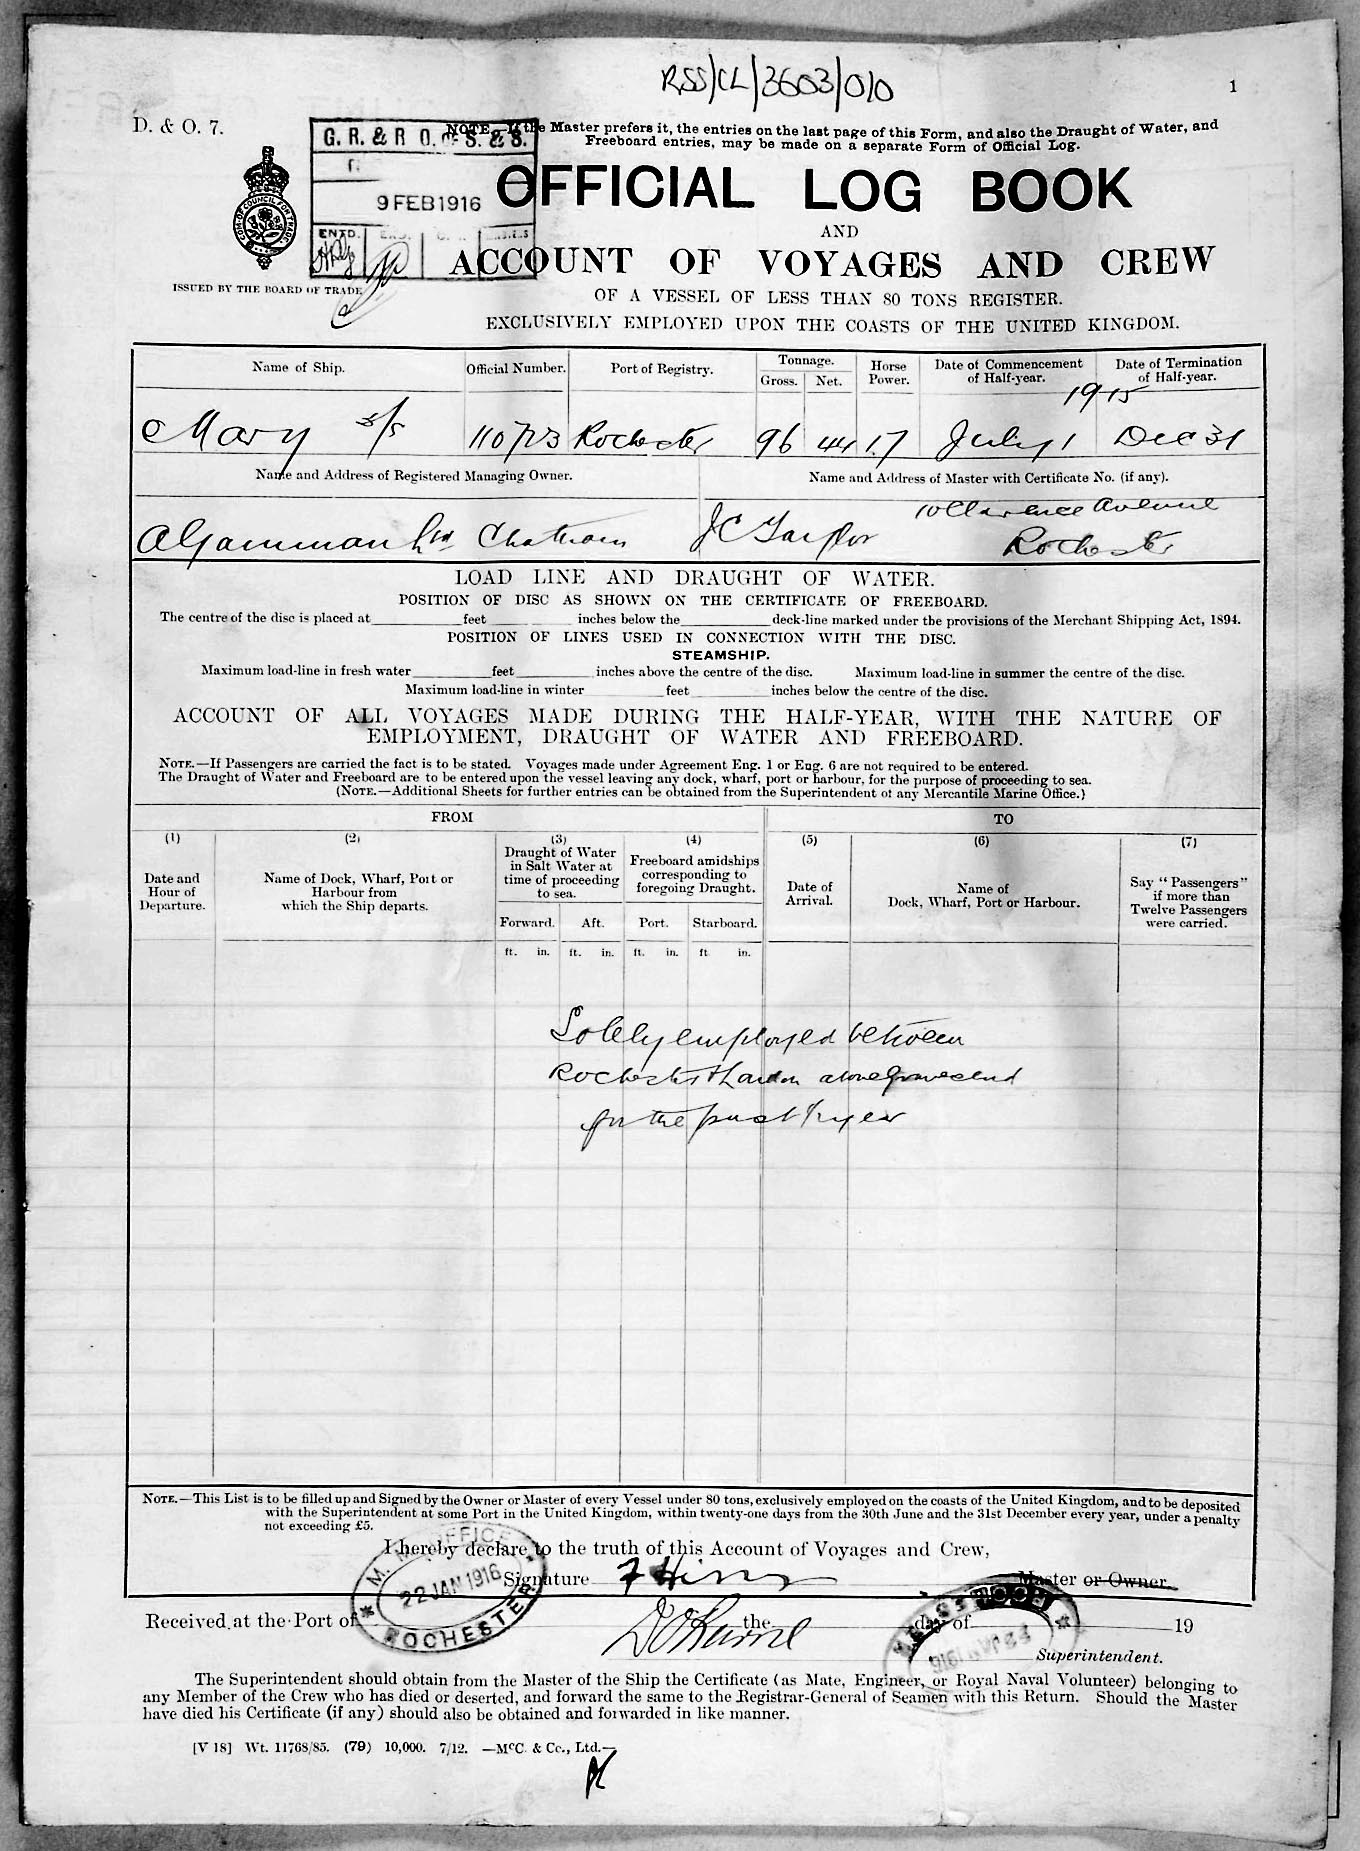 RSS/CL/3603/010
1
D. & O. 7.
NOTE.—If the Master prefers it, the entries on the last page of this Form, and also the Draught of Water, and
Freeboard entries, may be made on a separate Form of Official Log.
G. R. & R O. OF S. & S.
9 FEB 1916
ENTD.
OFFICIAL LOG BOOK
AND
ACCOUNT OF VOYAGES AND CREW
ISSUED BY THE BOARD OF TRADE
OF A VESSEL OF LESS THAN 80 TONS REGISTER.
EXCLUSIVELY EMPLOYED UPON THE COASTS OF THE UNITED KINGDOM.
Name of Ship. Official Number. Port of Registry. Tonnage. Gross. Net. Horse Power. Date of Commencement of Half-year. Date of Termination of Half-year.
1915
Mary s/s 110723 Rochester 96 44 17 July 1 Dec 31
Name and Address of Registered Managing Owner. Name and Address of Master with Certificate No. (if any).
A Gamman Ltd Chatham J C Taylor 10 Clarence Avenue
Rochester
LOAD LINE AND DRAUGHT OF WATER.
POSITION OF DISC AS SHOWN ON THE CERTIFICATE OF FREEBOARD.
The centre of the disc is placed at feet inches below the deck-line marked under the provisions of the Merchant Shipping Act, 1894.
POSITION OF LINES USED IN CONNECTION WITH THE DISC.
STEAMSHIP.
Maximum load-line in fresh water feet inches above the centre of the disc. Maximum load-line in summer the centre of the disc.
Maximum load-line in winter feet inches below the centre of the disc.
ACCOUNT OF ALL VOYAGES MADE DURING THE HALF-YEAR, WITH THE NATURE OF
EMPLOYMENT, DRAUGHT OF WATER AND FREEBOARD.
NOTE.—If Passengers are carried the fact is to be stated. Voyages made under Agreement Eng. 1 or Eng. 6 are not required to be entered.
The Draught of Water and Freeboard are to be entered upon the vessel leaving any dock, wharf, port or harbour, for the purpose of proceeding to sea.
(NOTE.—Additional Sheets for further entries can be obtained from the Superintendent of any Mercantile Marine Office.)
FROM TO
(1) (2) (3) (4) (5) (6) (7)
Date and Hour of Departure.
Name of Dock, Wharf, Port or Harbour from which the Ship departs.
Draught of Water in Salt Water at time of proceeding to sea.
Freeboard amidships corresponding to foregoing Draught.
Date of Arrival.
Name of Dock, Wharf, Port or Harbour.
Say "Passengers" if more than Twelve Passengers were carried.
Forward. Aft. Port. Starboard.
ft. in. ft. in. ft. in. ft in.
Solely employed between
Rochester & London above Gravesend
for the past 1/2 year
NOTE.—This List is to be filled up and Signed by the Owner or Master of every Vessel under 80 tons, exclusively employed on the coasts of the United Kingdom, and to be deposited
with the Superintendent at some Port in the United Kingdom, within twenty-one days from the 30th June and the 31st December every year, under a penalty
not exceeding £5.
I hereby declare to the truth of this Account of Voyages and Crew,
Signature Master or Owner.
M. M. OFFICE
22 JAN 1916
ROCHESTER
Received at the Port of the day of 19
22 JAN 1916
Superintendent.
The Superintendent should obtain from the Master of the Ship the Certificate (as Mate, Engineer, or Royal Naval Volunteer) belonging to
any Member of the Crew who has died or deserted, and forward the same to the Registrar-General of Seamen with this Return. Should the Master
have died his Certificate (if any) should also be obtained and forwarded in like manner.
[V 18] Wt. 11768/85. (79) 10,000. 7/12. —McC. & Co., Ltd.—